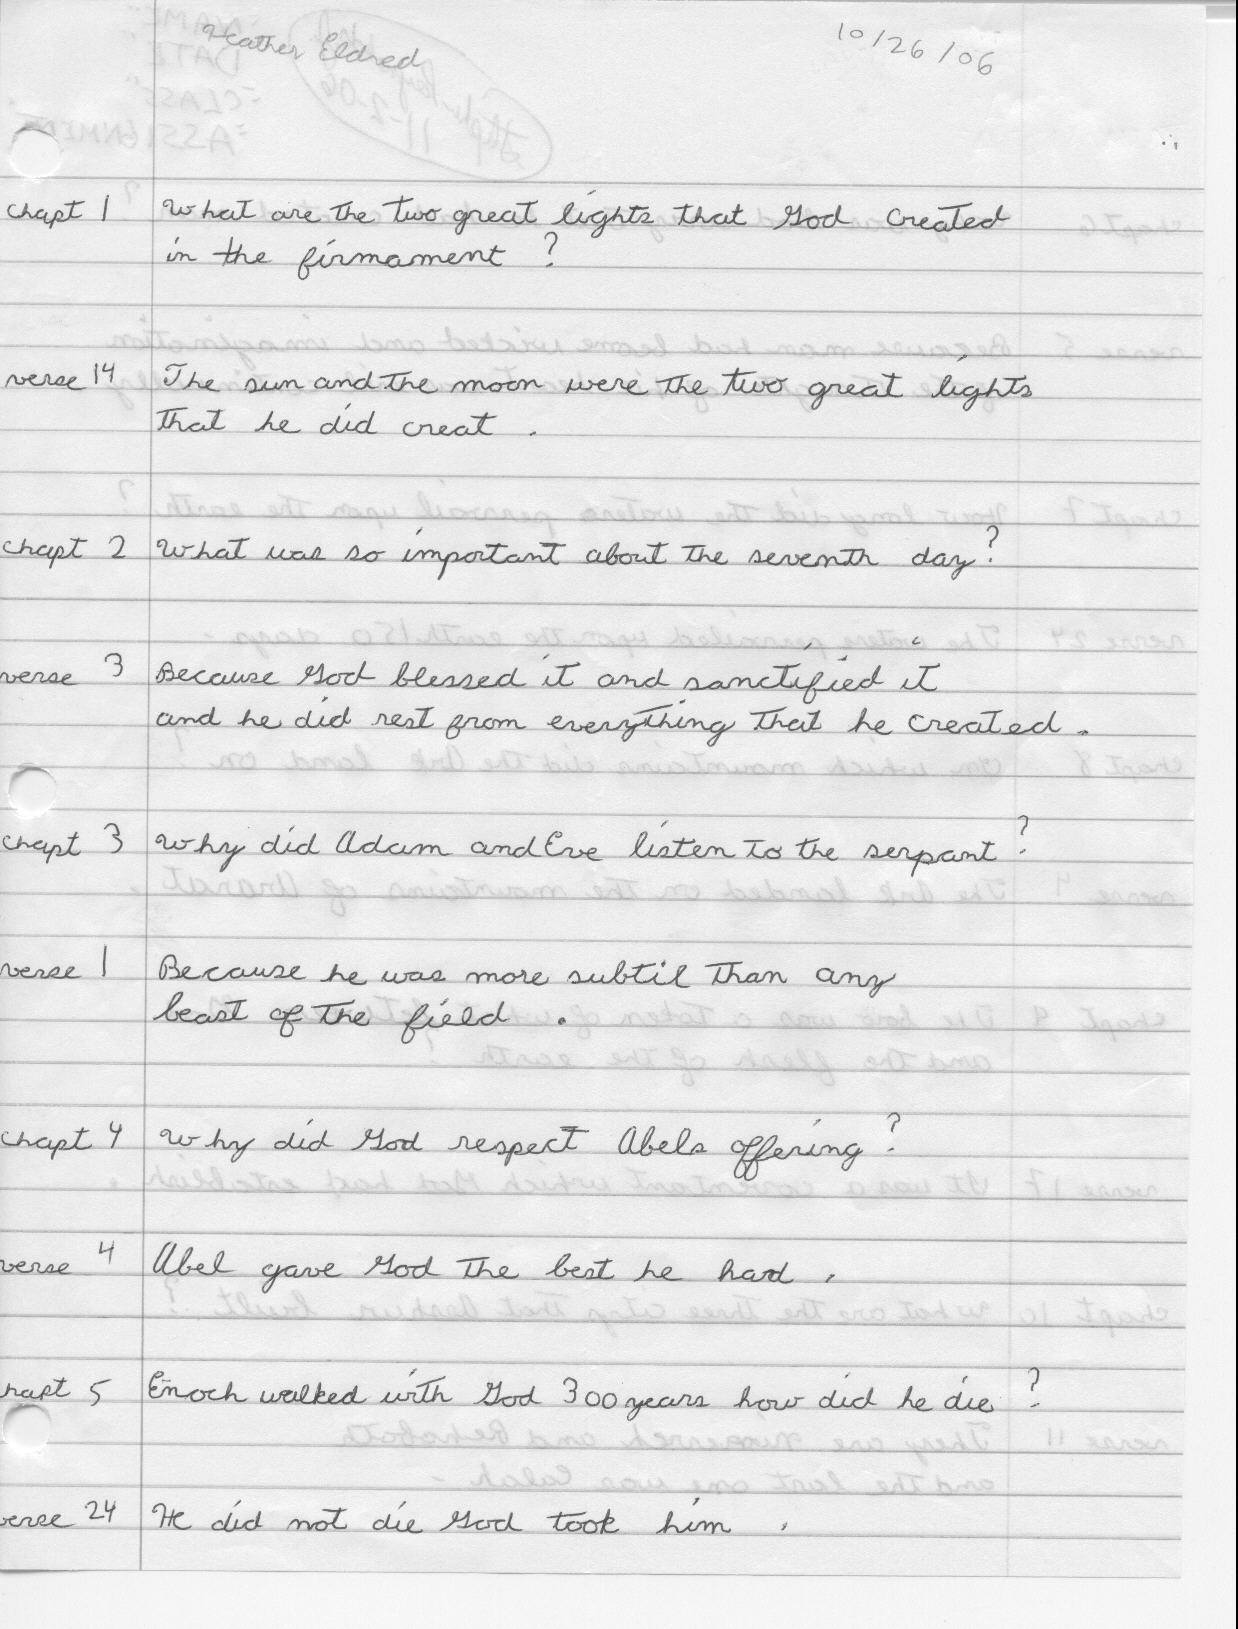 Heather Eldred
10/26/06
chapt 1 What are the two great lights that God created
in the firmament ?
verse 14 The sun and the moon were the two great lights
that he did creat .
chapt 2 What was so important about the seventh day ?
verse 3 Because God blessed it and sanctified it
and he did rest from everything that he created .
chapt 3 Why did Adam and Eve listen to the serpant ?
verse 1 Because he was more subtil than any
beast of the field .
chapt 4 Why did God respect Abels offering ?
verse 4 Abel gave God the best he had .
hapt 5 Enoch walked with God 300 years how did he die ?
verse 24 He did not die God took him .